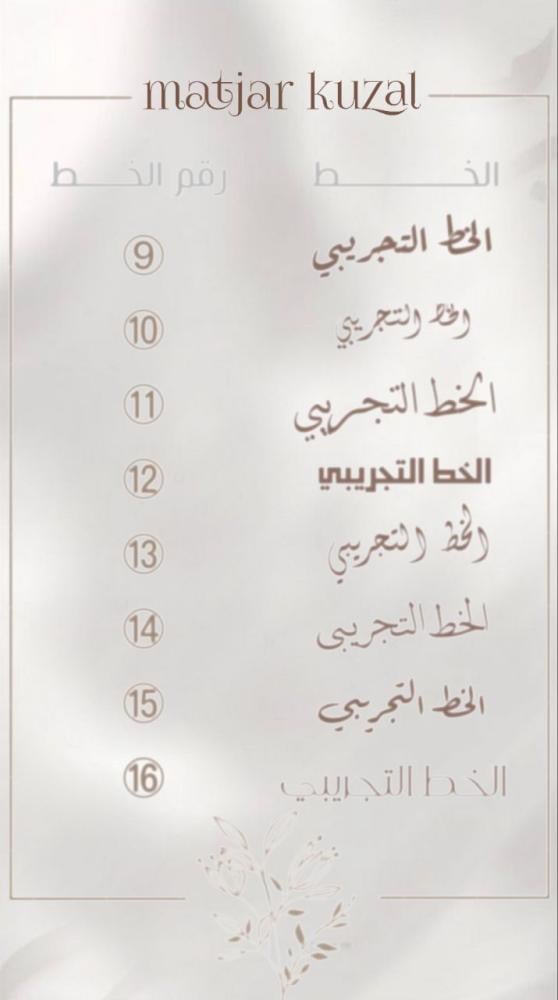 matjar kuzal
الخـــــط رقم الخـــط
الخط التجريبي 9
الخط التجريبي 10
الخط التجريبي 11
الخط التجريبي 12
الخط التجريبي 13
الخط التجريبي 14
الخط التجريبي 15
الخط التجريبي 16